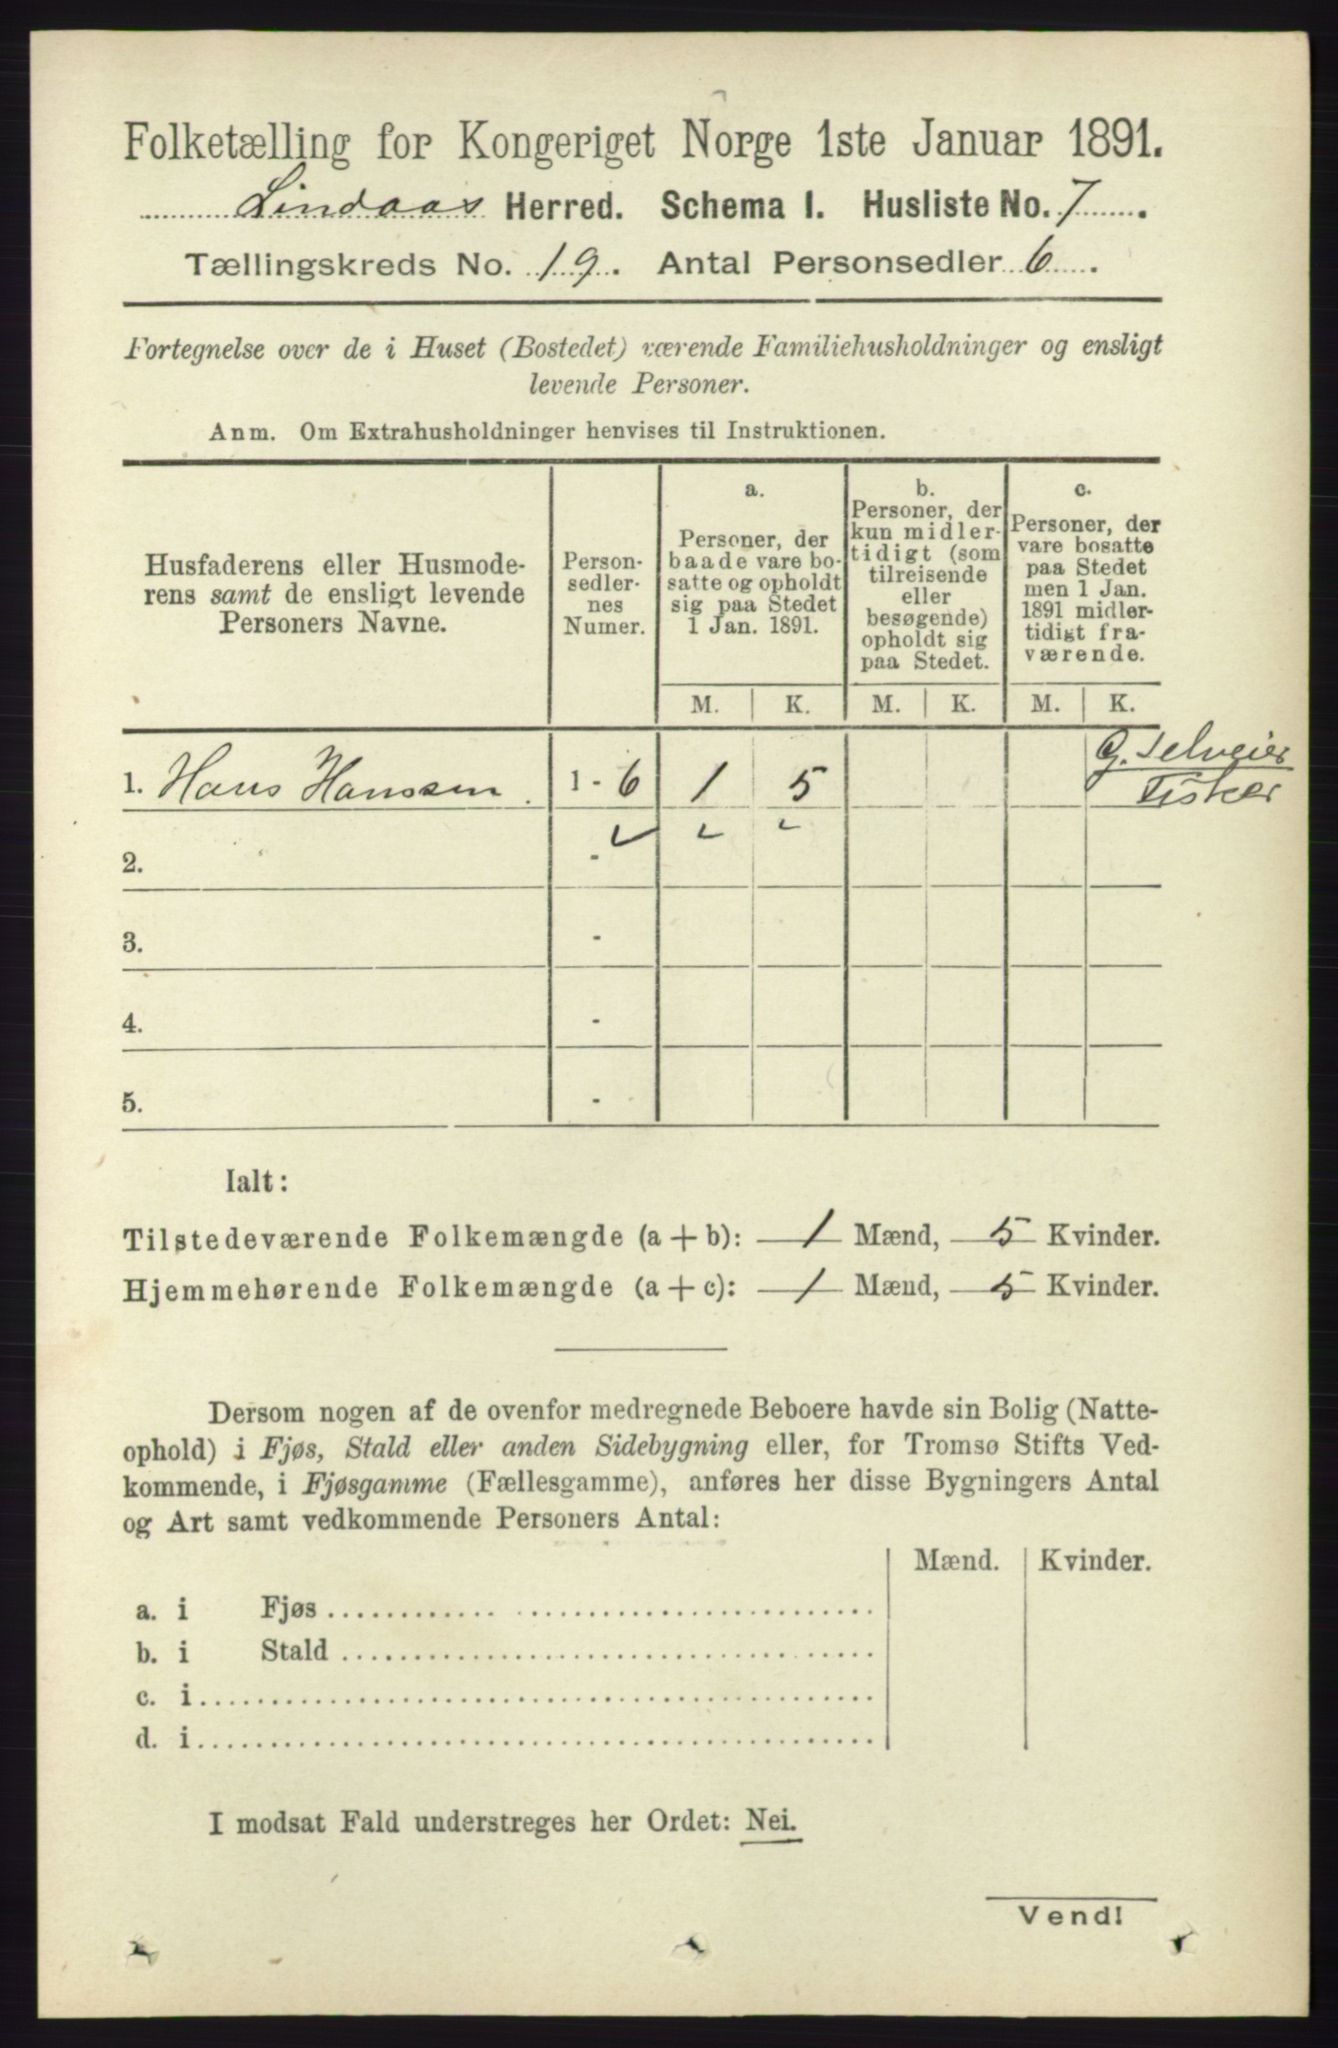 Folketælling for Kongeriget Norge 1ste Januar 1891.
Lindaas Herred. Schema I. Husliste No. 7.
Tællingskreds No. 19. Antal Personsedler 6.
Fortegnelse over de i Huset (Bostedet) værende Familiehusholdninger og ensligt
levende Personer.
Anm. Om Extrahusholdninger henvises til Instruktionen.
Husfaderens eller Husmode-
rens samt de ensligt levende
Personers Navne.
Person-
sedler-
nes
Numer.
a.
Personer, der
baade vare bo-
satte og opholdt
sig paa Stedet
1 Jan. 1891.
b.
Personer, der
kun midler-
tidigt (som
tilreisende
eller
besøgende)
opholdt sig
paa Stedet.
c.
Personer, der
vare bosatte
paa Stedet
men 1 Jan.
1891 midler-
tidigt fra-
værende.
M. K. M. K. M. K.
1. Hans Hanssen. 1 - 6 1 5 G. Selveier
Fisker
2. -
3. -
4. -
5. -
Ialt:
Tilstedeværende Folkemængde (a + b): 1 Mænd, 5 Kvinder.
Hjemmehørende Folkemængde (a + c): 1 Mænd, 5 Kvinder.
Dersom nogen af de ovenfor medregnede Beboere havde sin Bolig (Natte-
ophold) i Fjøs, Stald eller anden Sidebygning eller, for Tromsø Stifts Ved-
kommende, i Fjøsgamme (Fællesgamme), anføres her disse Bygningers Antal
og Art samt vedkommende Personers Antal:
Mænd. Kvinder.
a. i Fjøs
b. i Stald
c. i
d. i
I modsat Fald understreges her Ordet: Nei.
Vend!